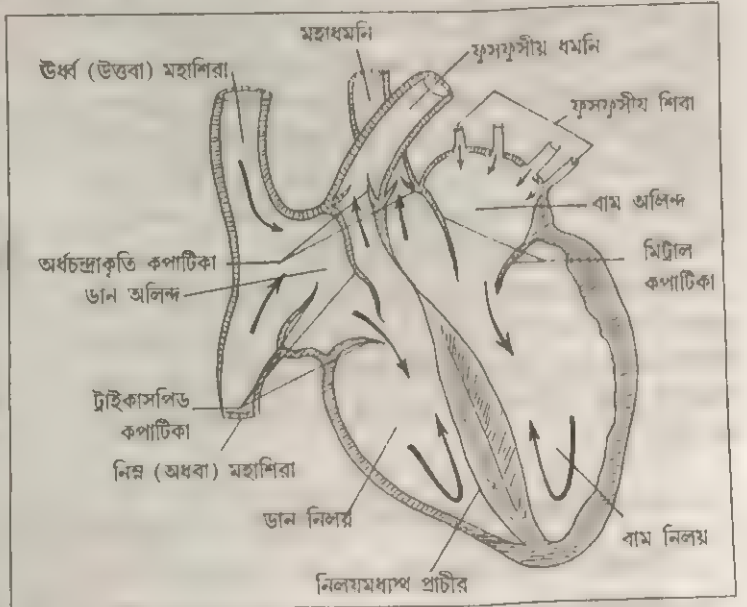 মহাধমনি
ফুসফুসীয় ধমনি
ঊর্ধ্ব (উত্তবা) মহাশিরা
ফুসফুসীয শিবা
বাম অলিন্দ
অর্ধচন্দ্রাকৃতি কপাটিকা
ডান অলিন্দ
মিট্রাল
কপাটিকা
ট্রাইকাসপিড
কপাটিকা
নিম্ন (অধবা) মহাশিরা
ডান নিলয়
বাম নিলয়
নিলযমধ্যস্থ প্রাচীর